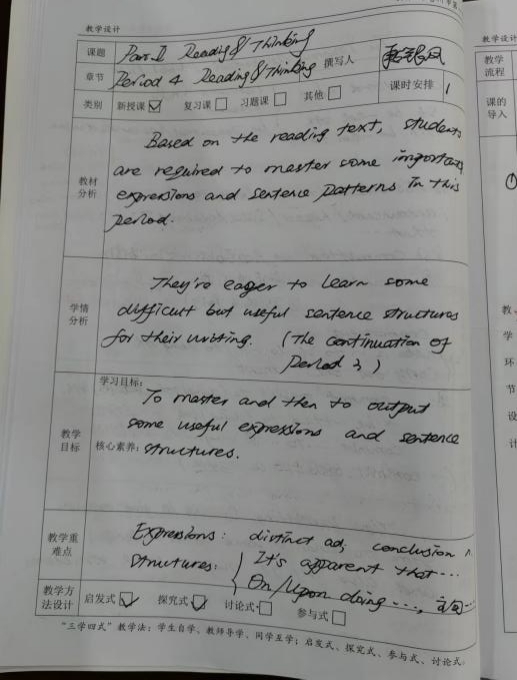 教学设计
课题 Part II Reading & Thinking
章节 Period 4 Reading & Thinking 撰写人
类别 新授课☑ 复习课☐ 习题课☐ 其他☐ 课时安排 1
教材分析
Based on the reading text, students
are required to master some important
expressions and sentence patterns in this
period.
学情分析
They're eager to learn some
difficult but useful sentence structures
for their writing. (The continuation of
Period 3)
教学目标
学习目标:
To master and then to output
some useful expressions and sentence
核心素养: structures.
教学重难点
Expressions: distinct adj; conclusion n.
structures: It's apparent that...
On/Upon doing ..., 主句...
教学方法设计 启发式☑ 探究式☑ 讨论式☐ 参与式☐
“三学四式”教学法:学生自学、教师导学、同学互学;启发式、探究式、参与式、讨论式。
教学设计
教学流程
课的导入
教
学
环
节
设
计